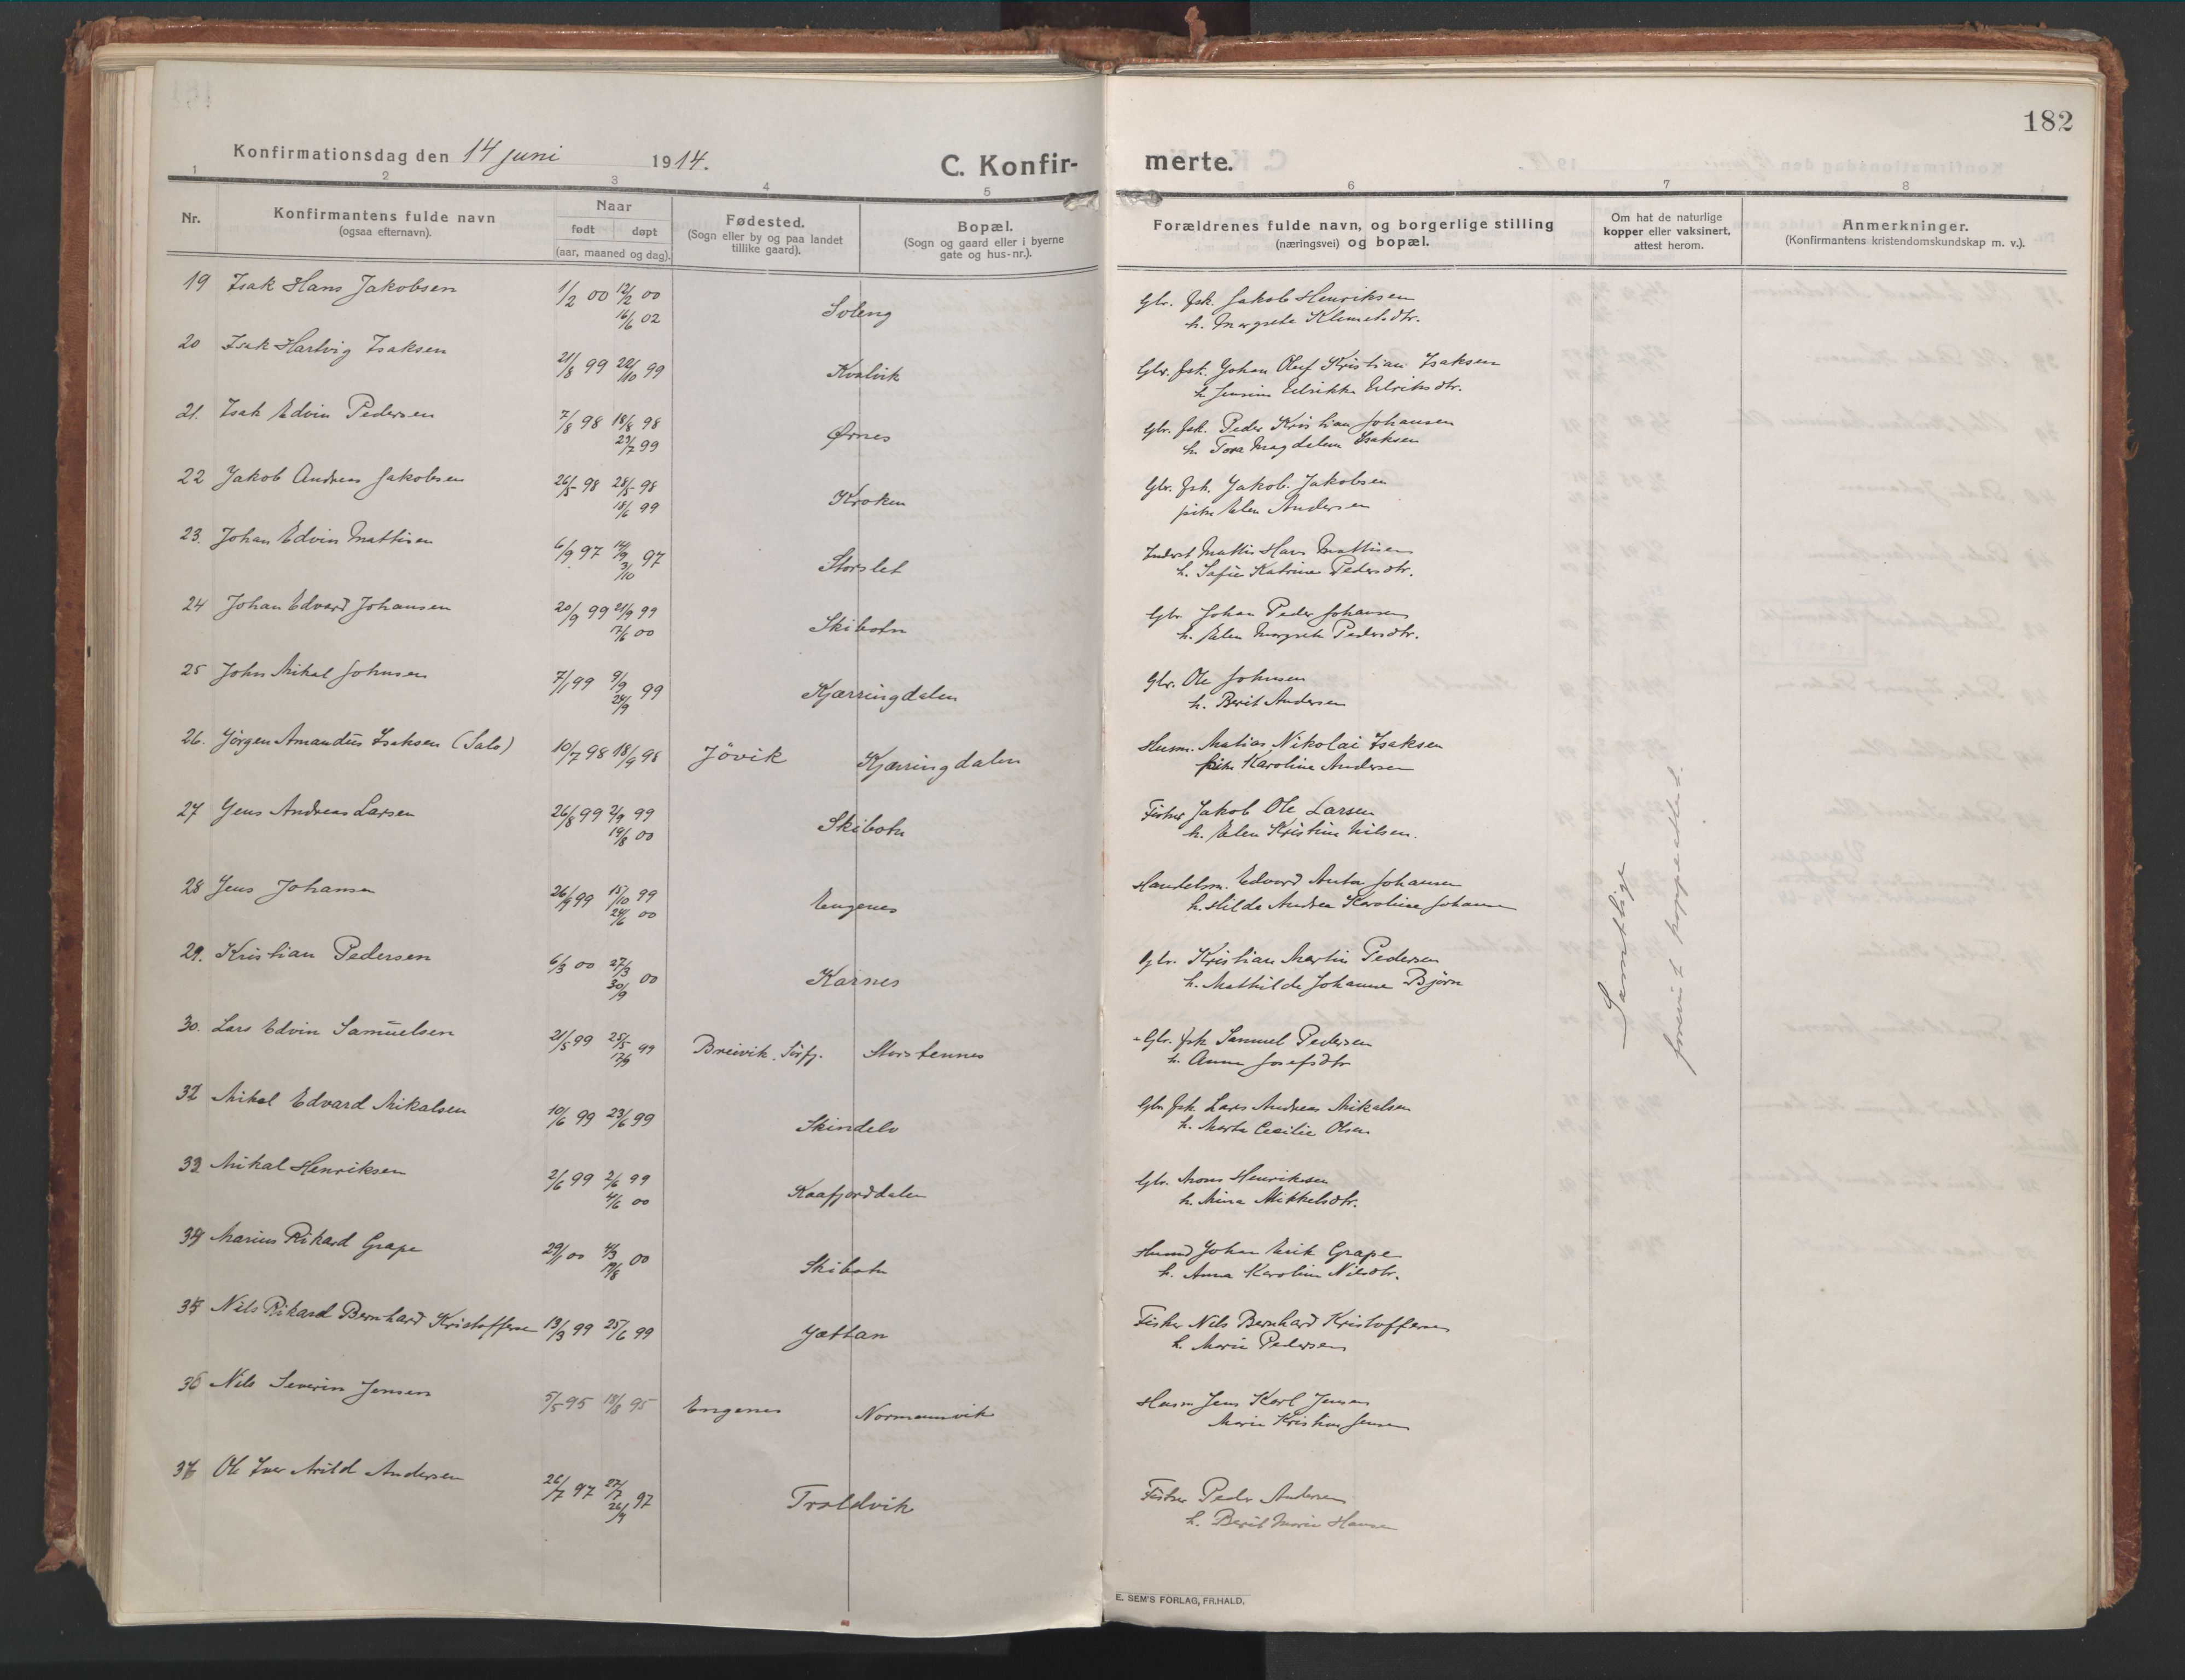 182
Konfirmationsdag den 14 juni 1914.
C. Konfir-
merte.
1 2 3 4 5 6 7 8
Nr.
Konfirmantens fulde navn
(ogsaa efternavn).
Naar
født døpt
(aar, maaned og dag).
Fødested.
(Sogn eller by og paa landet
tillike gaard).
Bopæl.
(Sogn og gaard eller i byerne
gate og hus-nr.).
Forældrenes fulde navn, og borgerlige stilling
(næringsvei) og bopæl.
Om hat de naturlige
kopper eller vaksinert,
attest herom.
Anmerkninger.
(Konfirmantens kristendomskundskap m. v.).
19 Isak Hans Jakobsen 1/2 00 12/2 00 16/6 02 Soleng Gbr. fsk. Jakob Henriksen
h. Margrete Klemetsdtr.
20 Isak Hartvig Isaksen 21/8 99 22/10 99 Kvalvik Gbr. fsk. Johan Oluf Kristian Isaksen
h. Jensine Ulrikke Ulriksdtr.
21. Isak Edvin Pedersen 7/8 98 18/8 98 23/7 99 Ørnes Gbr. fsk. Peder Kristian Johansen
h. Tora Magdalena Isaksen
22 Jakob Andreas Jakobsen 26/5 98 28/5 98 18/6 99 Kroken Gbr. fsk. Jakob Jakobsen
pike Elen Andersen
23. Johan Edvin Mattisen 6/9 97 14/9 3/10 97 Storslet Inderst Mattis Hans Mattisen
h. Sofie Katrine Pedersdtr.
24 Johan Edvard Johansen 20/9 99 21/9 99 17/6 00 Skibotn Gbr. Johan Peder Johansen
h. Elen Margrete Pedersdtr.
25 John Mikal Johnsen 7/1 99 9/9 24/9 99 Kjærringdalen Gbr. Ole Johnsen
h. Berit Andersen
26. Jørgen Amandus Isaksen (Salo) 10/7 98 18/9 98 Jövik Kjærringdalen Husm. Matias Nikolai Isaksen
pike Karoline Andersen
27 Jens Andreas Larsen 26/8 99 2/9 99 19/8 00 Skibotn Fisker Jakob Ole Larsen
h. Elen Kristine Nilsen.
28 Jens Johansen 26/9 99 15/10 99 24/6 00 Engenes Handelsm. Edvard Anton Johansen
h. Hilda Andrea Karoline Johansen
29. Kristian Pedersen 6/3 00 27/3 30/9 00 Karnes Gbr. Kristian Martin Pedersen
h. Mathilde Johanna Bjørn
30. Lars Edvin Samuelsen 21/5 99 25/5 17/9 99 Breivik, Sörfj. Storstennes Gbr. fsk Samuel Pedersen
h. Anna Josefsdtr
32 Mikal Edvard Mikalsen 10/6 99 23/6 99 Skindelv Gbr. fsk. Lars Andreas Mikalsen
h. Marta Cecilie Olsen
33 Mikal Henriksen 2/6 99 2/6 99 4/6 00 Kaafjorddalen Gbr. Mons Henriksen
h. Nina Mikkelsdtr.
34 Marius Rikard Grape 29/1 00 4/3 19/8 00 Skibotn Husmd Johan Erik Grape
h. Anna Karoline Nilsdtr.
35 Nils Rikard Bernhard Kristoffersen 13/3 99 25/6 99 Jættan Fisker Nils Bernhard Kristoffersen
h. Marie Pedersen
36 Nils Severin Jensen 5/5 95 18/8 95 Engenes Normannvik Husm Jens Karl Jensen
Marie Kristine Jensen
37 Ole Iver Arild Andersen 26/7 97 27/7 97 Troldvik Fisker Peder Andersen
h. Berit Marie Hansen
Samtlige
forevist koppeattest.
E. SEM'S FORLAG, FR.HALD.